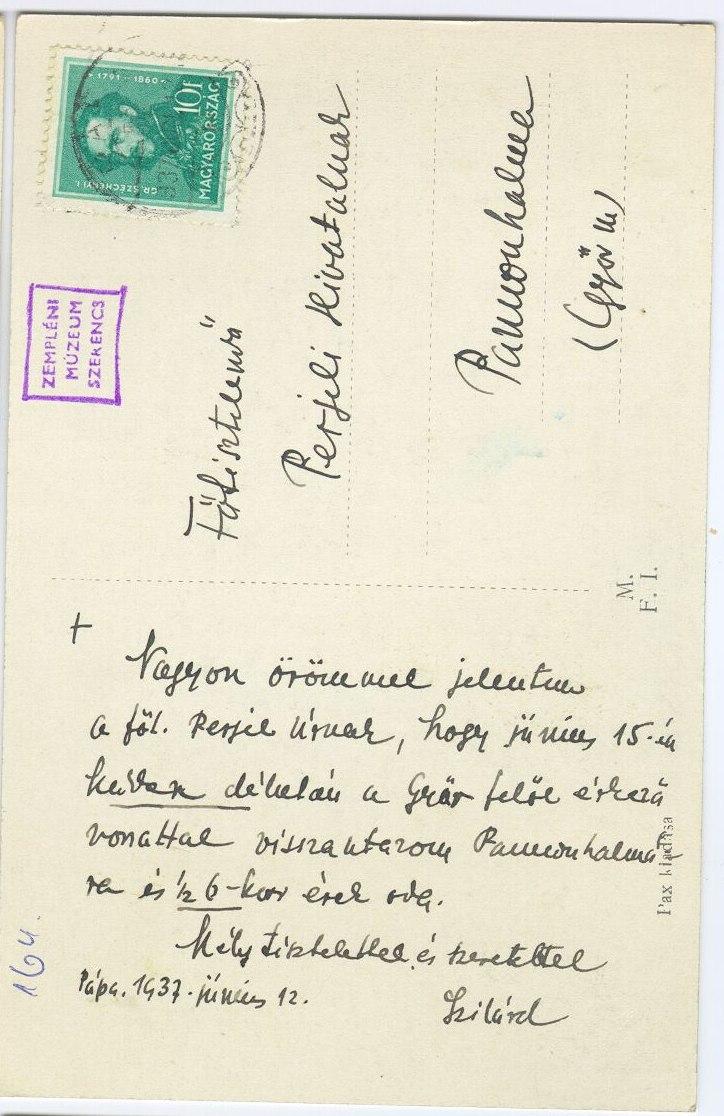 1791-1860
10f
MAGYARORSZÁG
GR. SZÉCHENYI I.
ZEMPLÉNI
MÚZEUM
SZERENCS
Főtisztelendő
Perjeli Hivatalnak
Pannonhalma
(Győr m)
M.
F. I.
+
Nagyon örömmel jelentem
a föt. Perjel Úrnak, hogy június 15-én
kedden délután a Győr felöl érkező
vonattal visszautazom Pannonhalmá-
ra és ½ 6-kor érek oda.
Mély tisztelettel és szeretettel
Pápa. 1937. június 12.
Szilárd
Pax kiadása
164.